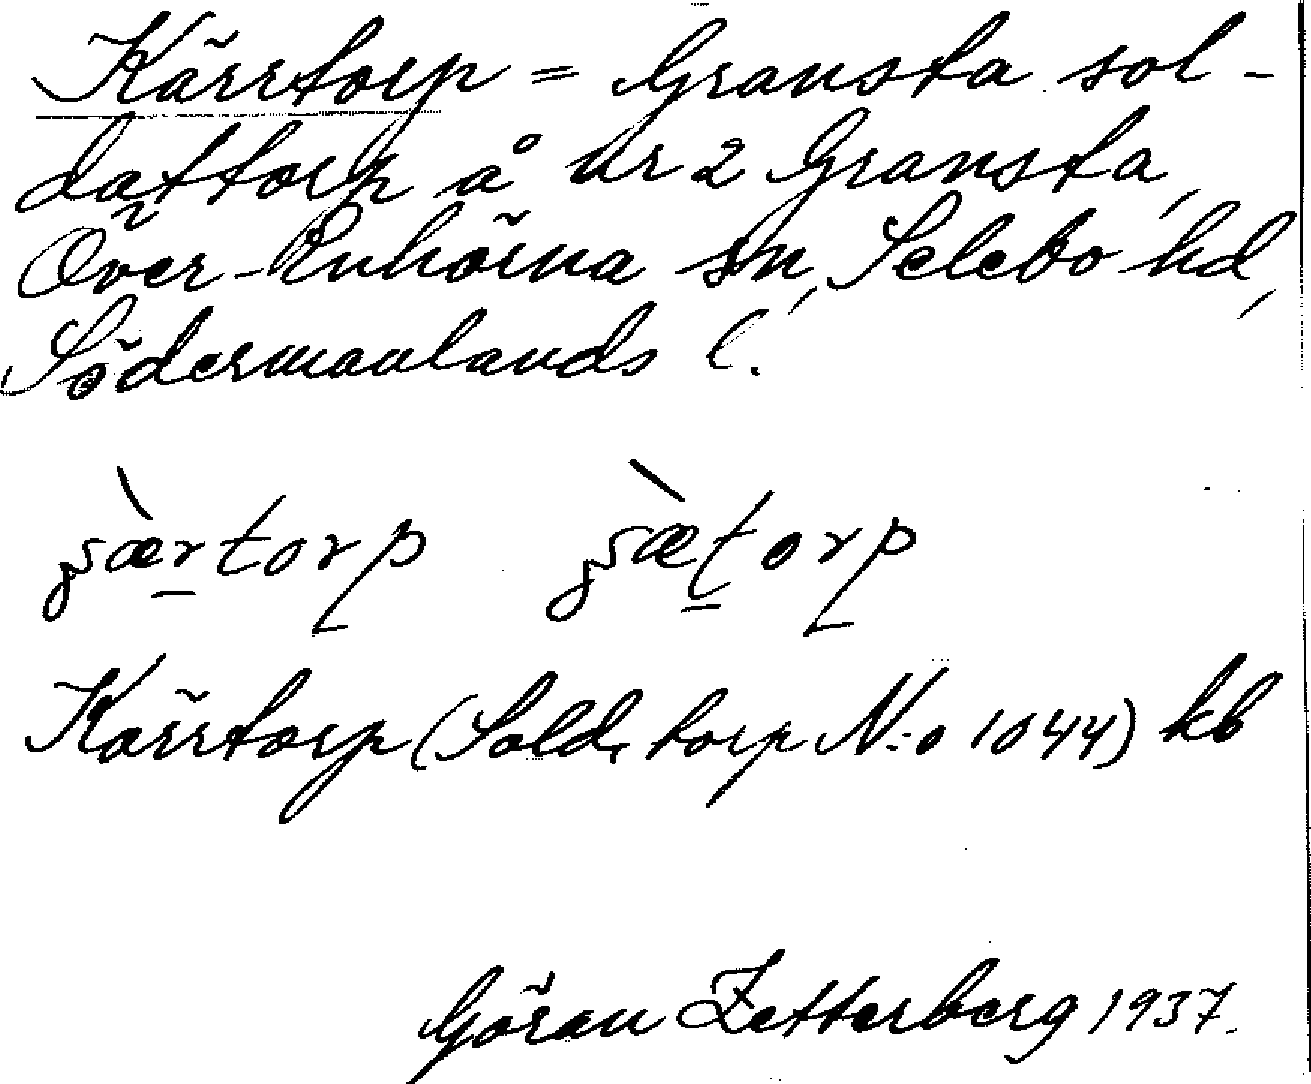 Kärrtorp = Gransta sol-
dattorp å nr 2 Gransta,
Över-Enhörna sn, Selebo hd,
Södermanlands l.
Kärrtorp (Sold. torp N:o 1044) kb
Göran Zetterberg 1937.